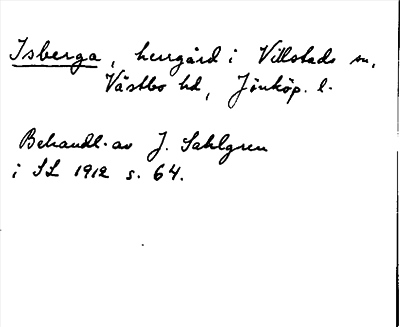 Isberga, herrgård i Villstads sn,
Västbo hd, Jönköp. l.
Behandl. av J. Sahlgren
i SL 1912 s. 64.